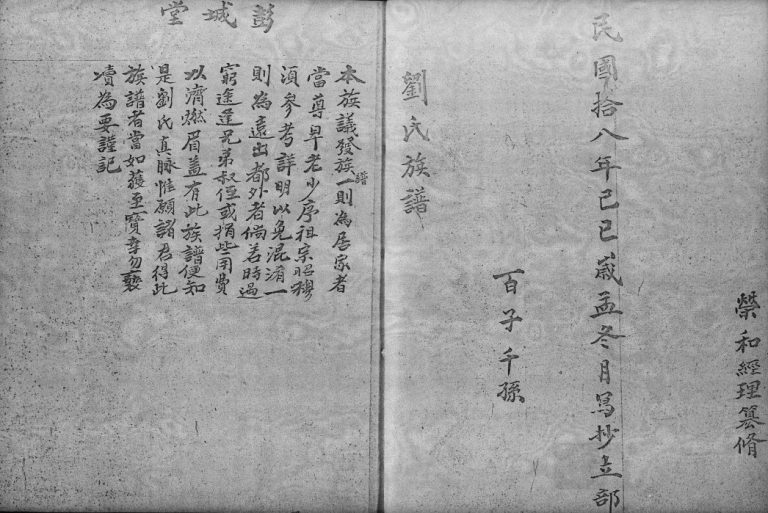 榮和經理纂脩
民國拾八年己巳歲孟冬月写抄立部
百子千孫
劉氏族譜
彭城堂
本族議發族譜一則為居家者
當尊卑老少序祖宗昭穆
須參考詳明以免混淆一
則為遠出都外者倘若時過
窮途逢兄弟叔侄或捐些用費
以濟燃眉盖有此族譜便知
是劉氏真脉惟願諸君得此
族譜者當如蒦至寶幸勿褻
瀆為要謹記